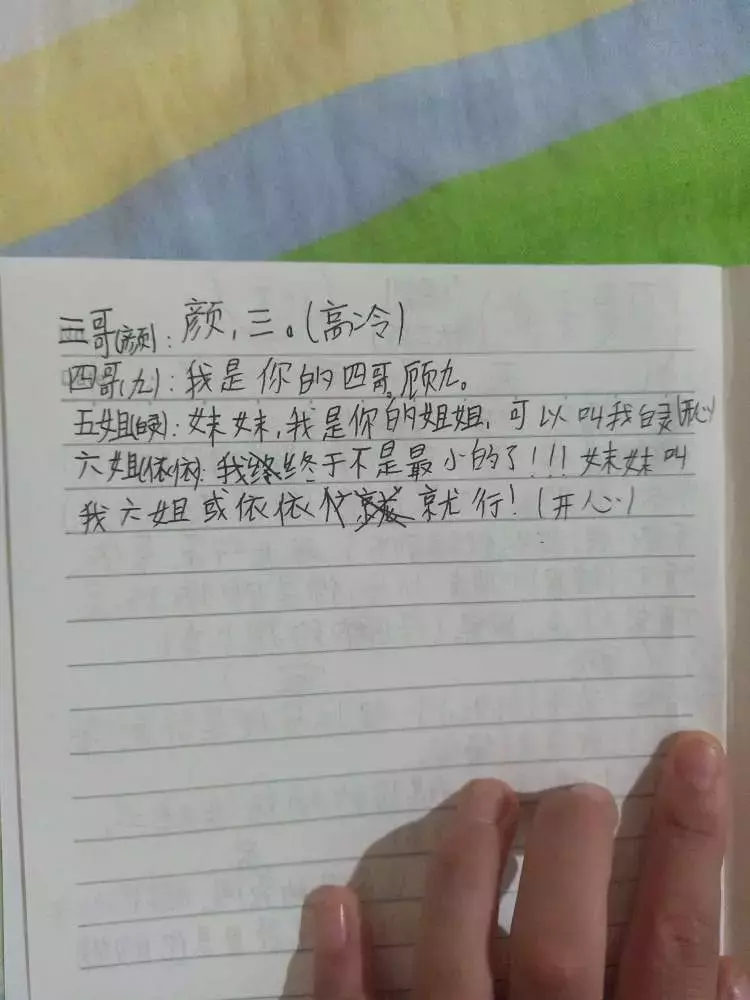 三哥(颜):颜,三。(高冷)
四哥(九):我是你的四哥,顾九。
五姐(白灵):妹妹,我是你的姐姐,可以叫我白灵(开心)
六姐(依依):我终于不是最小的了!!!妹妹叫
我六姐或依依 就行!(开心)